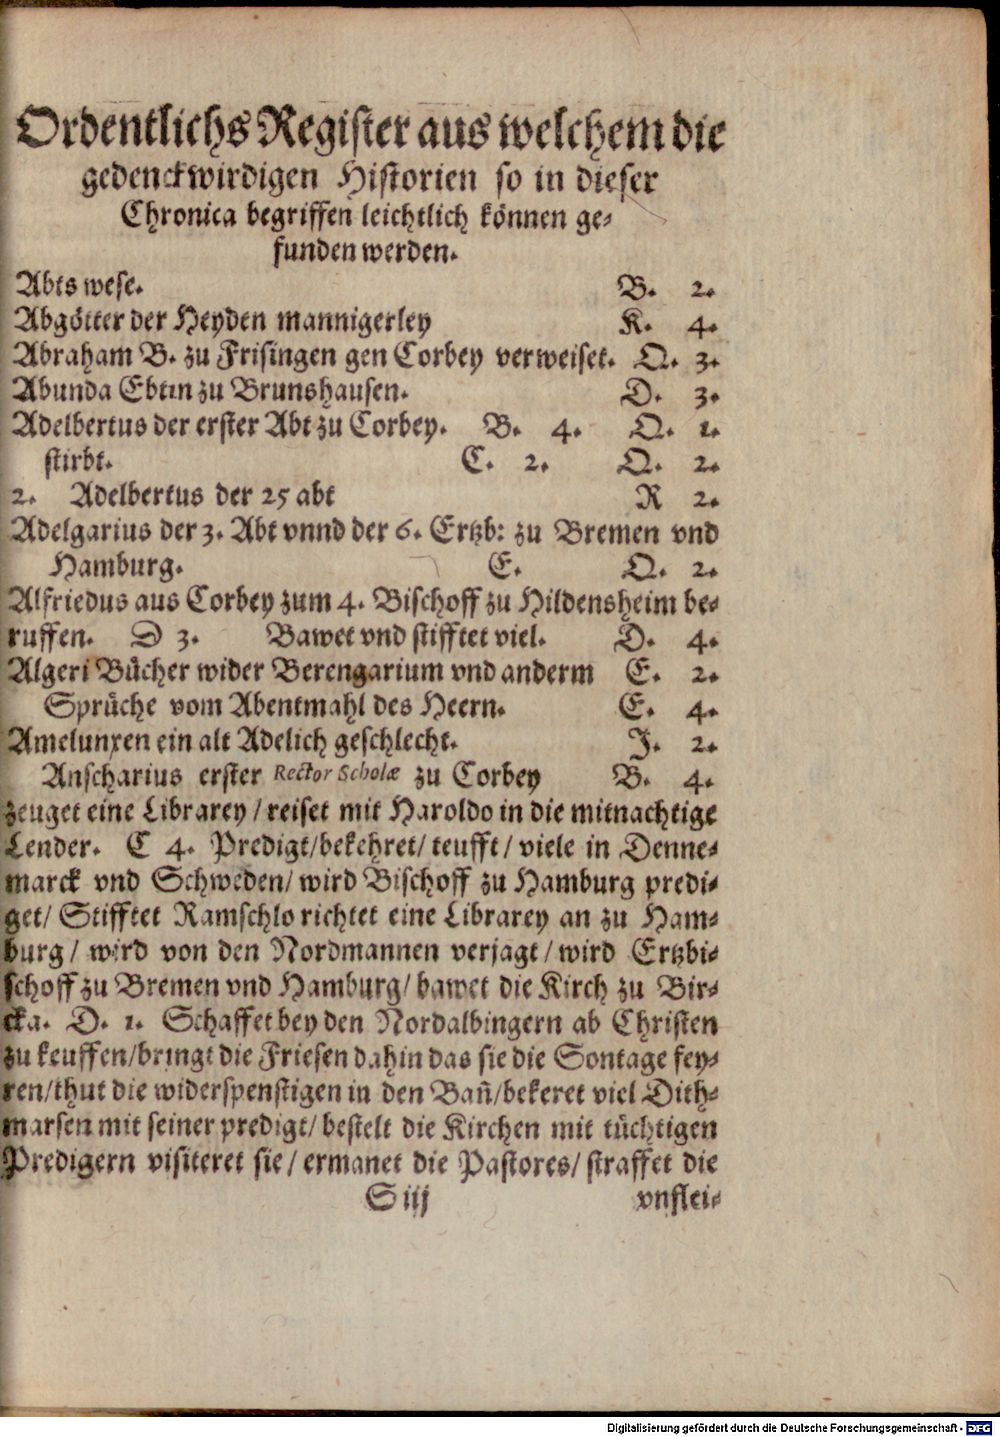 Ordentlichs Register aus welchem die
gedenckwirdigen Historien so in dieser
Chronica begriffen leichtlich können ge-
funden werden.
Abts wese. B. 2.
Abgötter der Heyden mannigerley K. 4.
Abraham B. zu Frisingen gen Corbey verweiset. O. 3.
Abunda Ebtin zu Brunshausen. D. 3.
Adelbertus der erster Abt zu Corbey. B. 4. O. 1.
stirbt. C. 2. O. 2.
2. Adelbertus der 25 abt R 2.
Adelgarius der 3. Abt vnnd der 6. Ertzb: zu Bremen vnd
Hamburg. E. O. 2.
Alfriedus aus Corbey zum 4. Bischoff zu Hildensheim be-
ruffen. D 3. Bawet vnd stifftet viel. D. 4.
Algeri Bücher wider Berengarium vnd anderm E. 2.
Sprüche vom Abentmahl des Heern. E. 4.
Amelunxen ein alt Adelich geschlecht. J. 2.
Anscharius erster Rector Scholæ zu Corbey B. 4.
zeuget eine Librarey / reiset mit Haroldo in die mitnachtige
Lender. C 4. Predigt/bekehret/ teufft / viele in Denne-
marck vnd Schweden/ wird Bischoff zu Hamburg predi-
get/ Stifftet Ramschlo richtet eine Librarey an zu Ham-
burg / wird von den Nordmannen verjagt / wird Ertzbi-
schoff zu Bremen vnd Hamburg/ bawet die Kirch zu Bir-
cka. D. 1. Schaffet bey den Nordalbingern ab Christen
zu keuffen/bringt die Friesen dahin das sie die Sontage fey-
ren/thut die widerspenstigen in den Bañ/bekeret viel Dith-
marsen mit seiner predigt/ bestelt die Kirchen mit tüchtigen
Predigern visiteret sie / ermanet die Pastores/ straffet die
S iij vnflei-
Digitalisierung gefördert durch die Deutsche Forschungsgemeinschaft - DFG